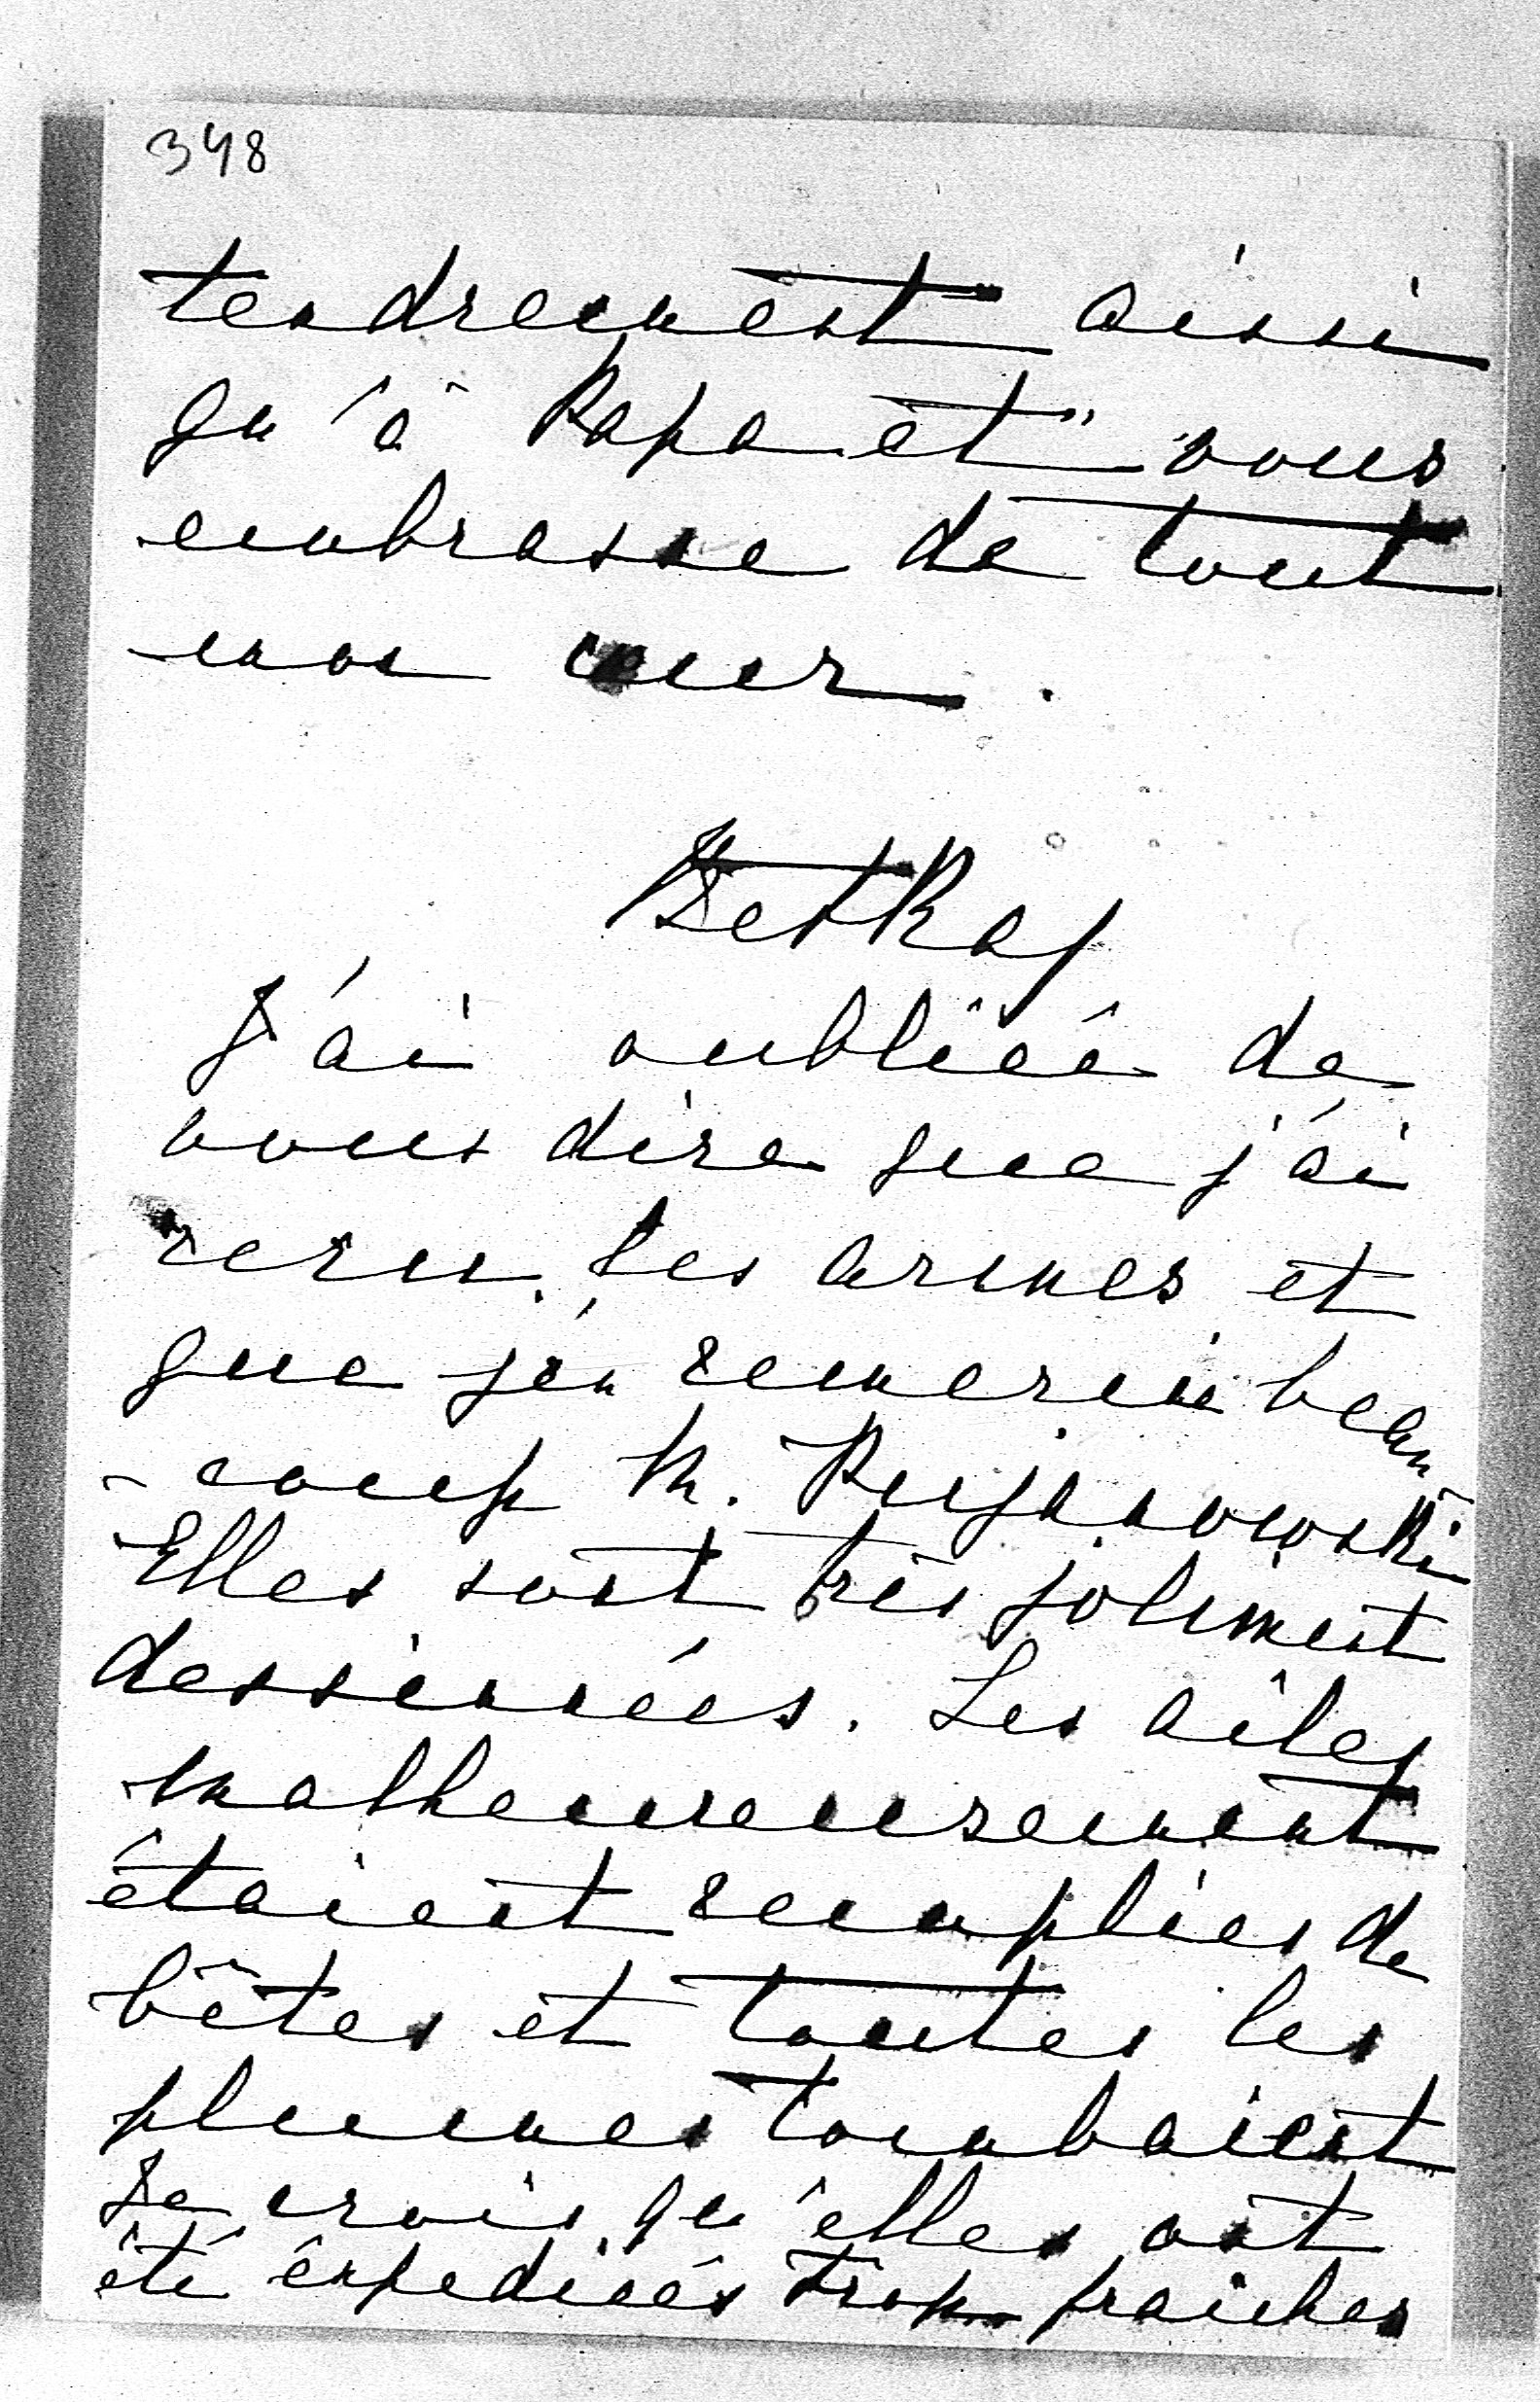 348
tendrement ainsi
qu'à Papa et vous
embrasse de tout
mon cœur.
Betka
J'ai oubliée de
vous dire que j'ai
reçu les armes et
que j'en remercie beau
-coup M. Pujanowski
Elles sont très joliment
dessinées. Les ailes
malheureusement
étaient remplies de
bêtes et toutes les
plumes tombaient
Je crois qu'elles ont
été expediées trop fraiches